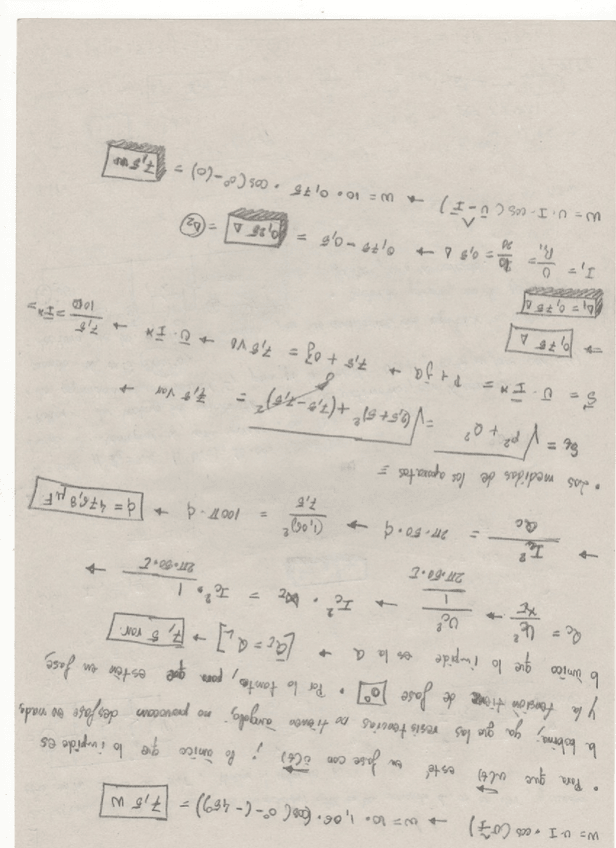 W = U · I · cos(U^I) → W = 10 · 1,06 · cos(0º-(-45º)) = 7,5 W
• Para que u(t) esté en fase con i(t); lo único que lo impide es
la bobina; ya que las resistencias no tienen ángulo, no provocan desfase en nada,
y la tensión tiene de fase 0º. Por lo tanto, para que estén en fase
lo único que lo impide es la Q → [Qc = QL] → 7,5 var.
Qc = Uc²/Xc → Uc²/(1/(2π·50·C)) → Ic² · = Ic² · 1/(2π·50·C) →
→ Ic²/Qc = 2π·50·q → (1,06)²/7,5 = 100π·q → q = 475,8 μF
• Las medidas de los aparatos =
S = √(P² + Q²) = √((2,5+5)² + (7,5-7,5)²) = 7,5 var →
0
S = U · I* = P + jQ → 7,5 + 0j = 7,5 VA → U · I* → 7,5/10 = I* =
⇒ 0,75 A
A1 = 0,75 A
I1 = U/R1 = 10/20 = 0,5 A → 0,75 - 0,5 = 0,25 A = A2
W = U · I · cos(U^-I) → W = 10 · 0,75 · cos(0º-(0)) = 7,5 W